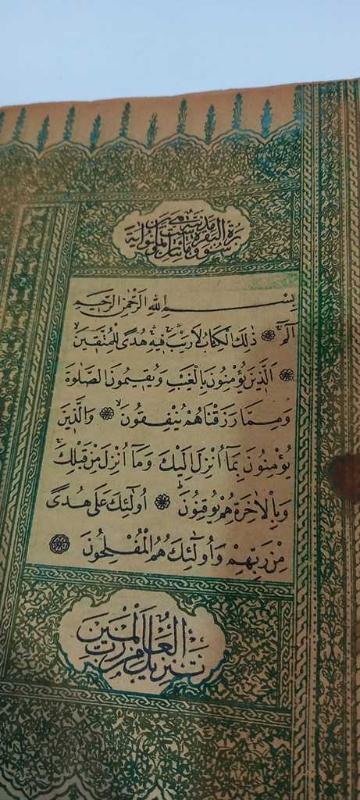 سورة البقرة مدنية وهي
مائتان وست وثمانون اية
بِسْمِ اللهِ الرَّحْمٰنِ الرَّحِيمِ
الٓمٓ ۞ ذٰلِكَ الْكِتَابُ لَا رَيْبَ فِيهِ هُدًى لِلْمُتَّقِينَ
۞ اَلَّذِينَ يُؤْمِنُونَ بِالْغَيْبِ وَيُقِيمُونَ الصَّلٰوةَ
وَمِمَّا رَزَقْنَاهُمْ يُنْفِقُونَ ۞ وَالَّذِينَ
يُؤْمِنُونَ بِمَا اُنْزِلَ اِلَيْكَ وَمَا اُنْزِلَ مِنْ قَبْلِكَ
وَبِالْاٰخِرَةِ هُمْ يُوقِنُونَ ۞ اُولٰئِكَ عَلٰى هُدًى
مِنْ رَبِّهِمْ وَاُولٰئِكَ هُمُ الْمُفْلِحُونَ ۞
تَنْزِيلٌ مِنْ رَبِّ الْعَالَمِينَ